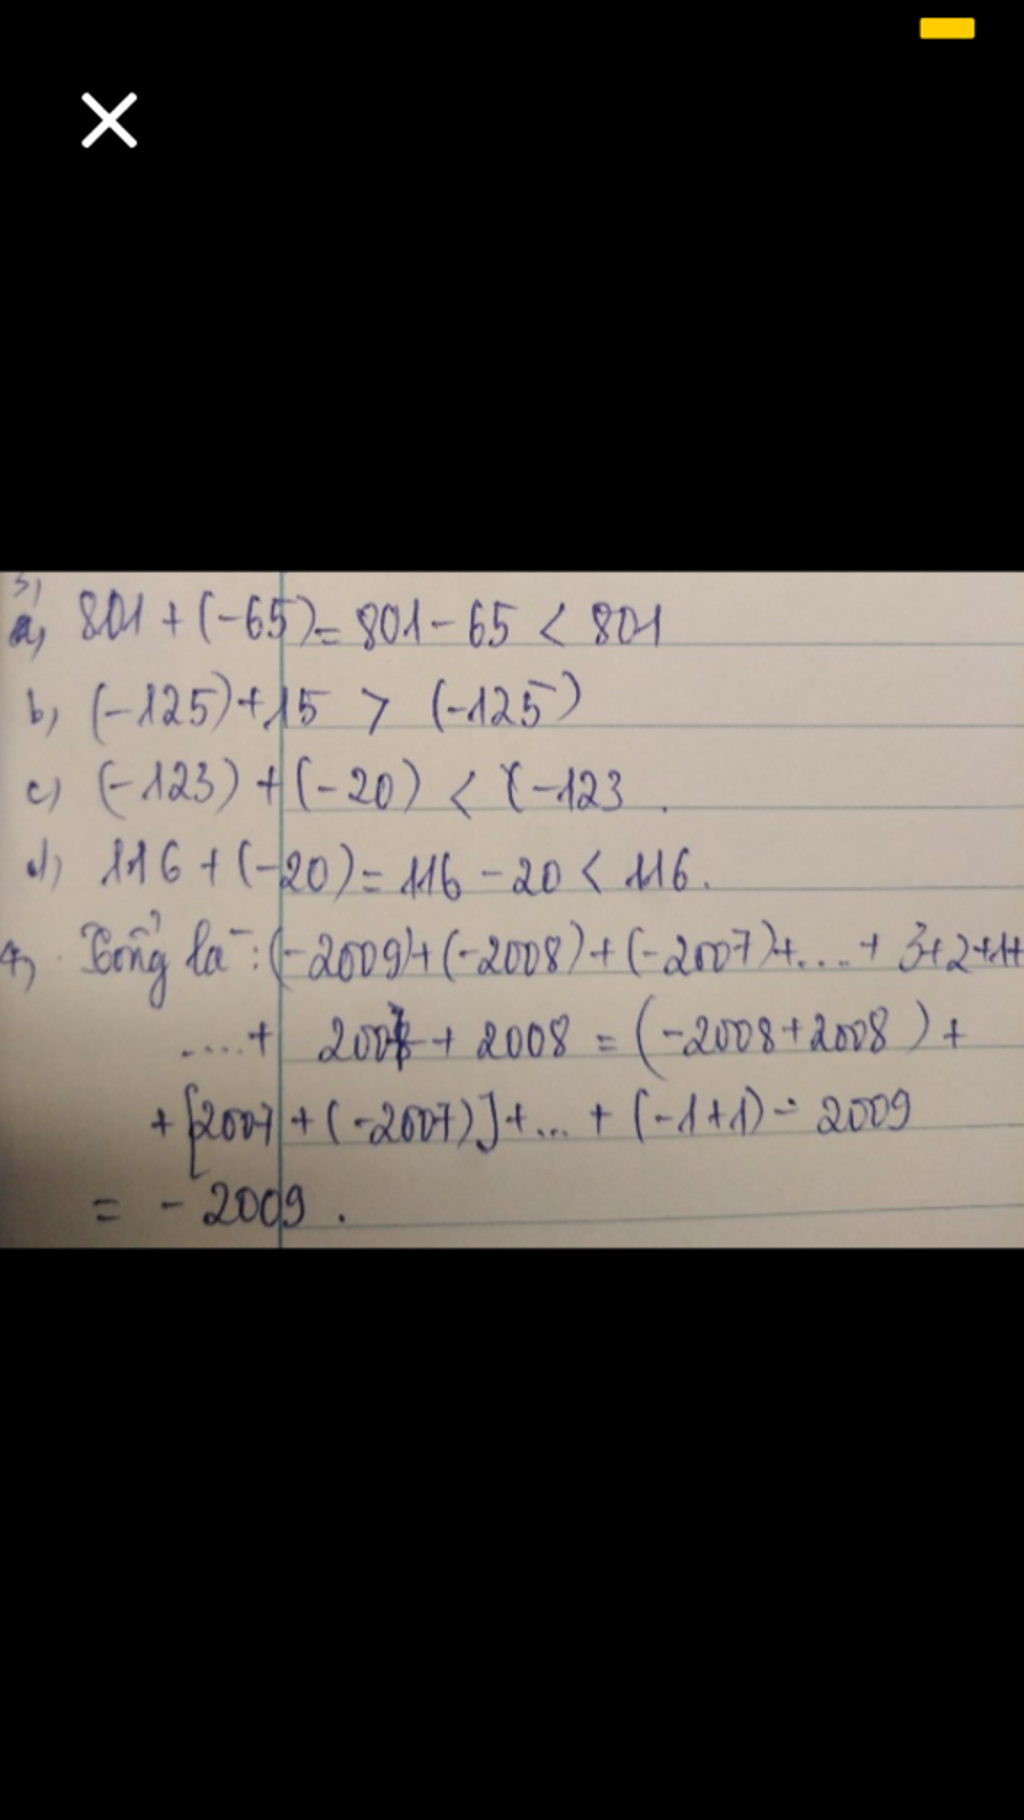 3,
a, 801 + (-65) = 801 - 65 < 801
b, (-125) + 15 > (-125)
c) (-123) + (-20) < (-123 .
d) 116 + (-20) = 116 - 20 < 116.
4, Tổng là : (-2009) + (-2008) + (-2007) + .... + 3 + 2 + 1 +
.... + 2007 + 2008 = (-2008 + 2008 ) +
+ [2007 + (-2007)] + ... + (-1 + 1) - 2009
= - 2009 .